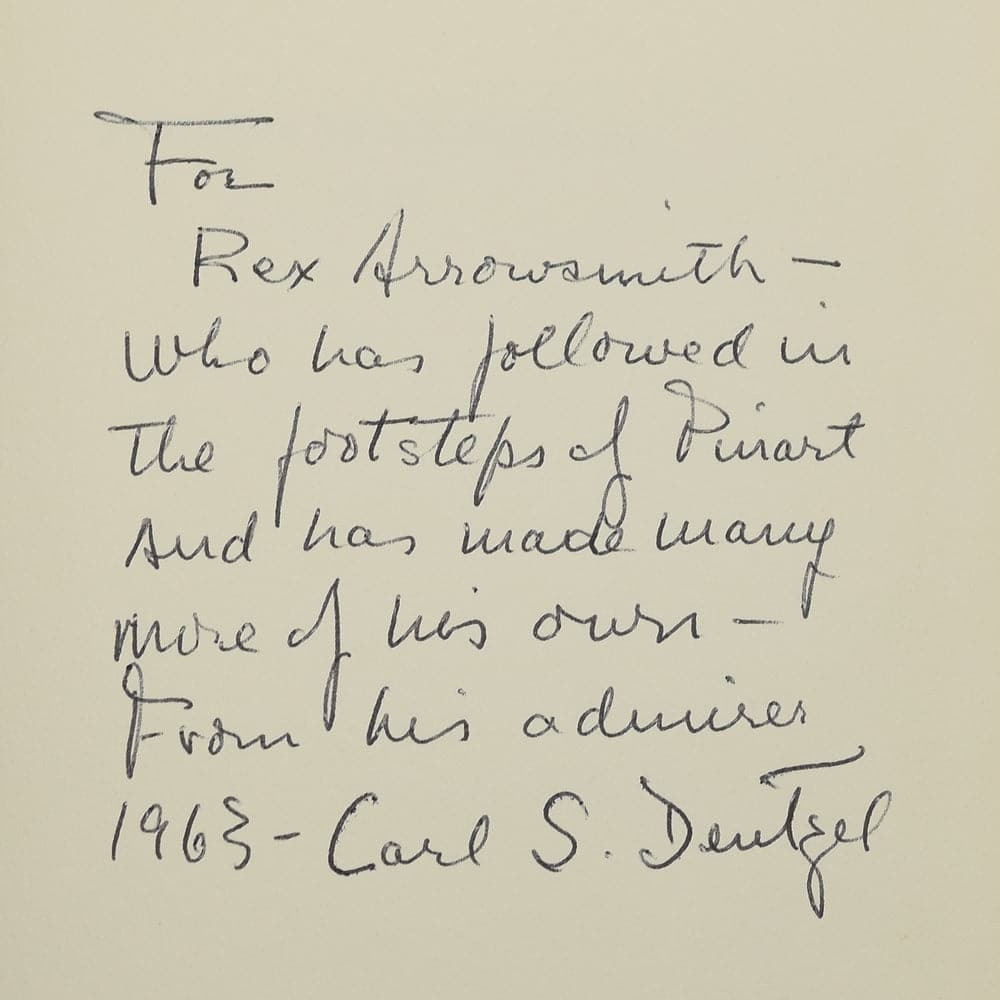 For
Rex Arrowsmith –
Who has followed in
The footsteps of Pinart
And has made many
more of his own –
From his admirer
1963 – Carl S. Dentzel